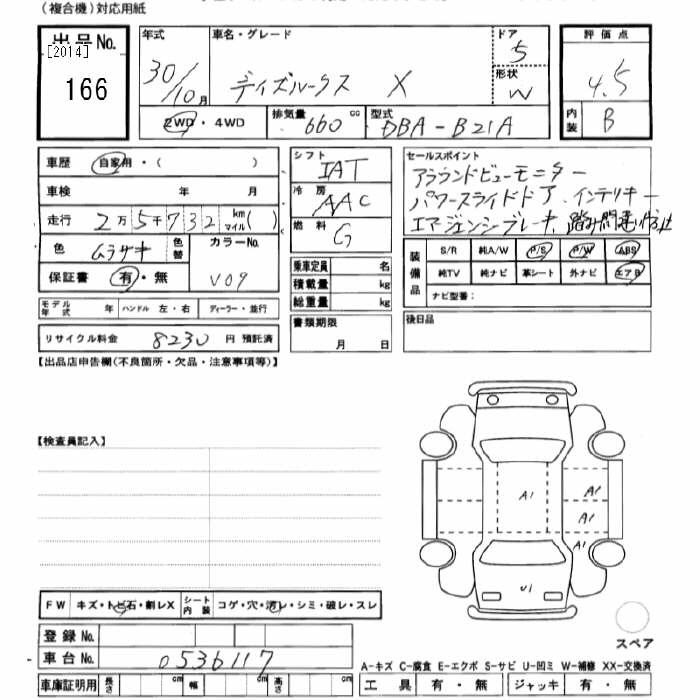 (複合機)対応用紙
出品No.
[2014]
166
年式 車名・グレード ドア
30/10月 デイズルークス X 5
形状
W
2WD・4WD 排気量 660 cc 型式 DBA-B21A
評価点
4.5
内装 B
車歴 自家用・( )
車検 年 月
走行 2万5千732 km マイル ( )
色 ムラサキ 色替 カラーNo.
保証書 有・無 V09
モデル年式 年 ハンドル 左・右 ディーラー・並行
リサイクル料金 8230 円 預託済
シフト
IAT
冷房
AAC
燃料
G
乗車定員 名
積載量 kg
総重量 kg
書類期限
月 日
セールスポイント
アラウンドビューモニター
パワースライドドア、インテリキー
エマージェンシーブレーキ、踏み間違い防止
装備品
S/R 純A/W P/S P/W ABS
純TV 純ナビ 革シート 外ナビ エアB
ナビ型番:
後日品
【出品店申告欄(不良箇所・欠品・注意事項等)】
【検査員記入】
A1
A1
A1
A1
U1
スペア
FW キズ・トビ石・割レX シート内装 コゲ・穴・汚レ・シミ・破レ・スレ
登録No.
車台No. 0536117
車庫証明用 長さ cm 幅 cm 高さ cm
A-キズ C-腐食 E-エクボ S-サビ U-凹ミ W-補修 XX-交換済
工具 有・無 ジャッキ 有・無